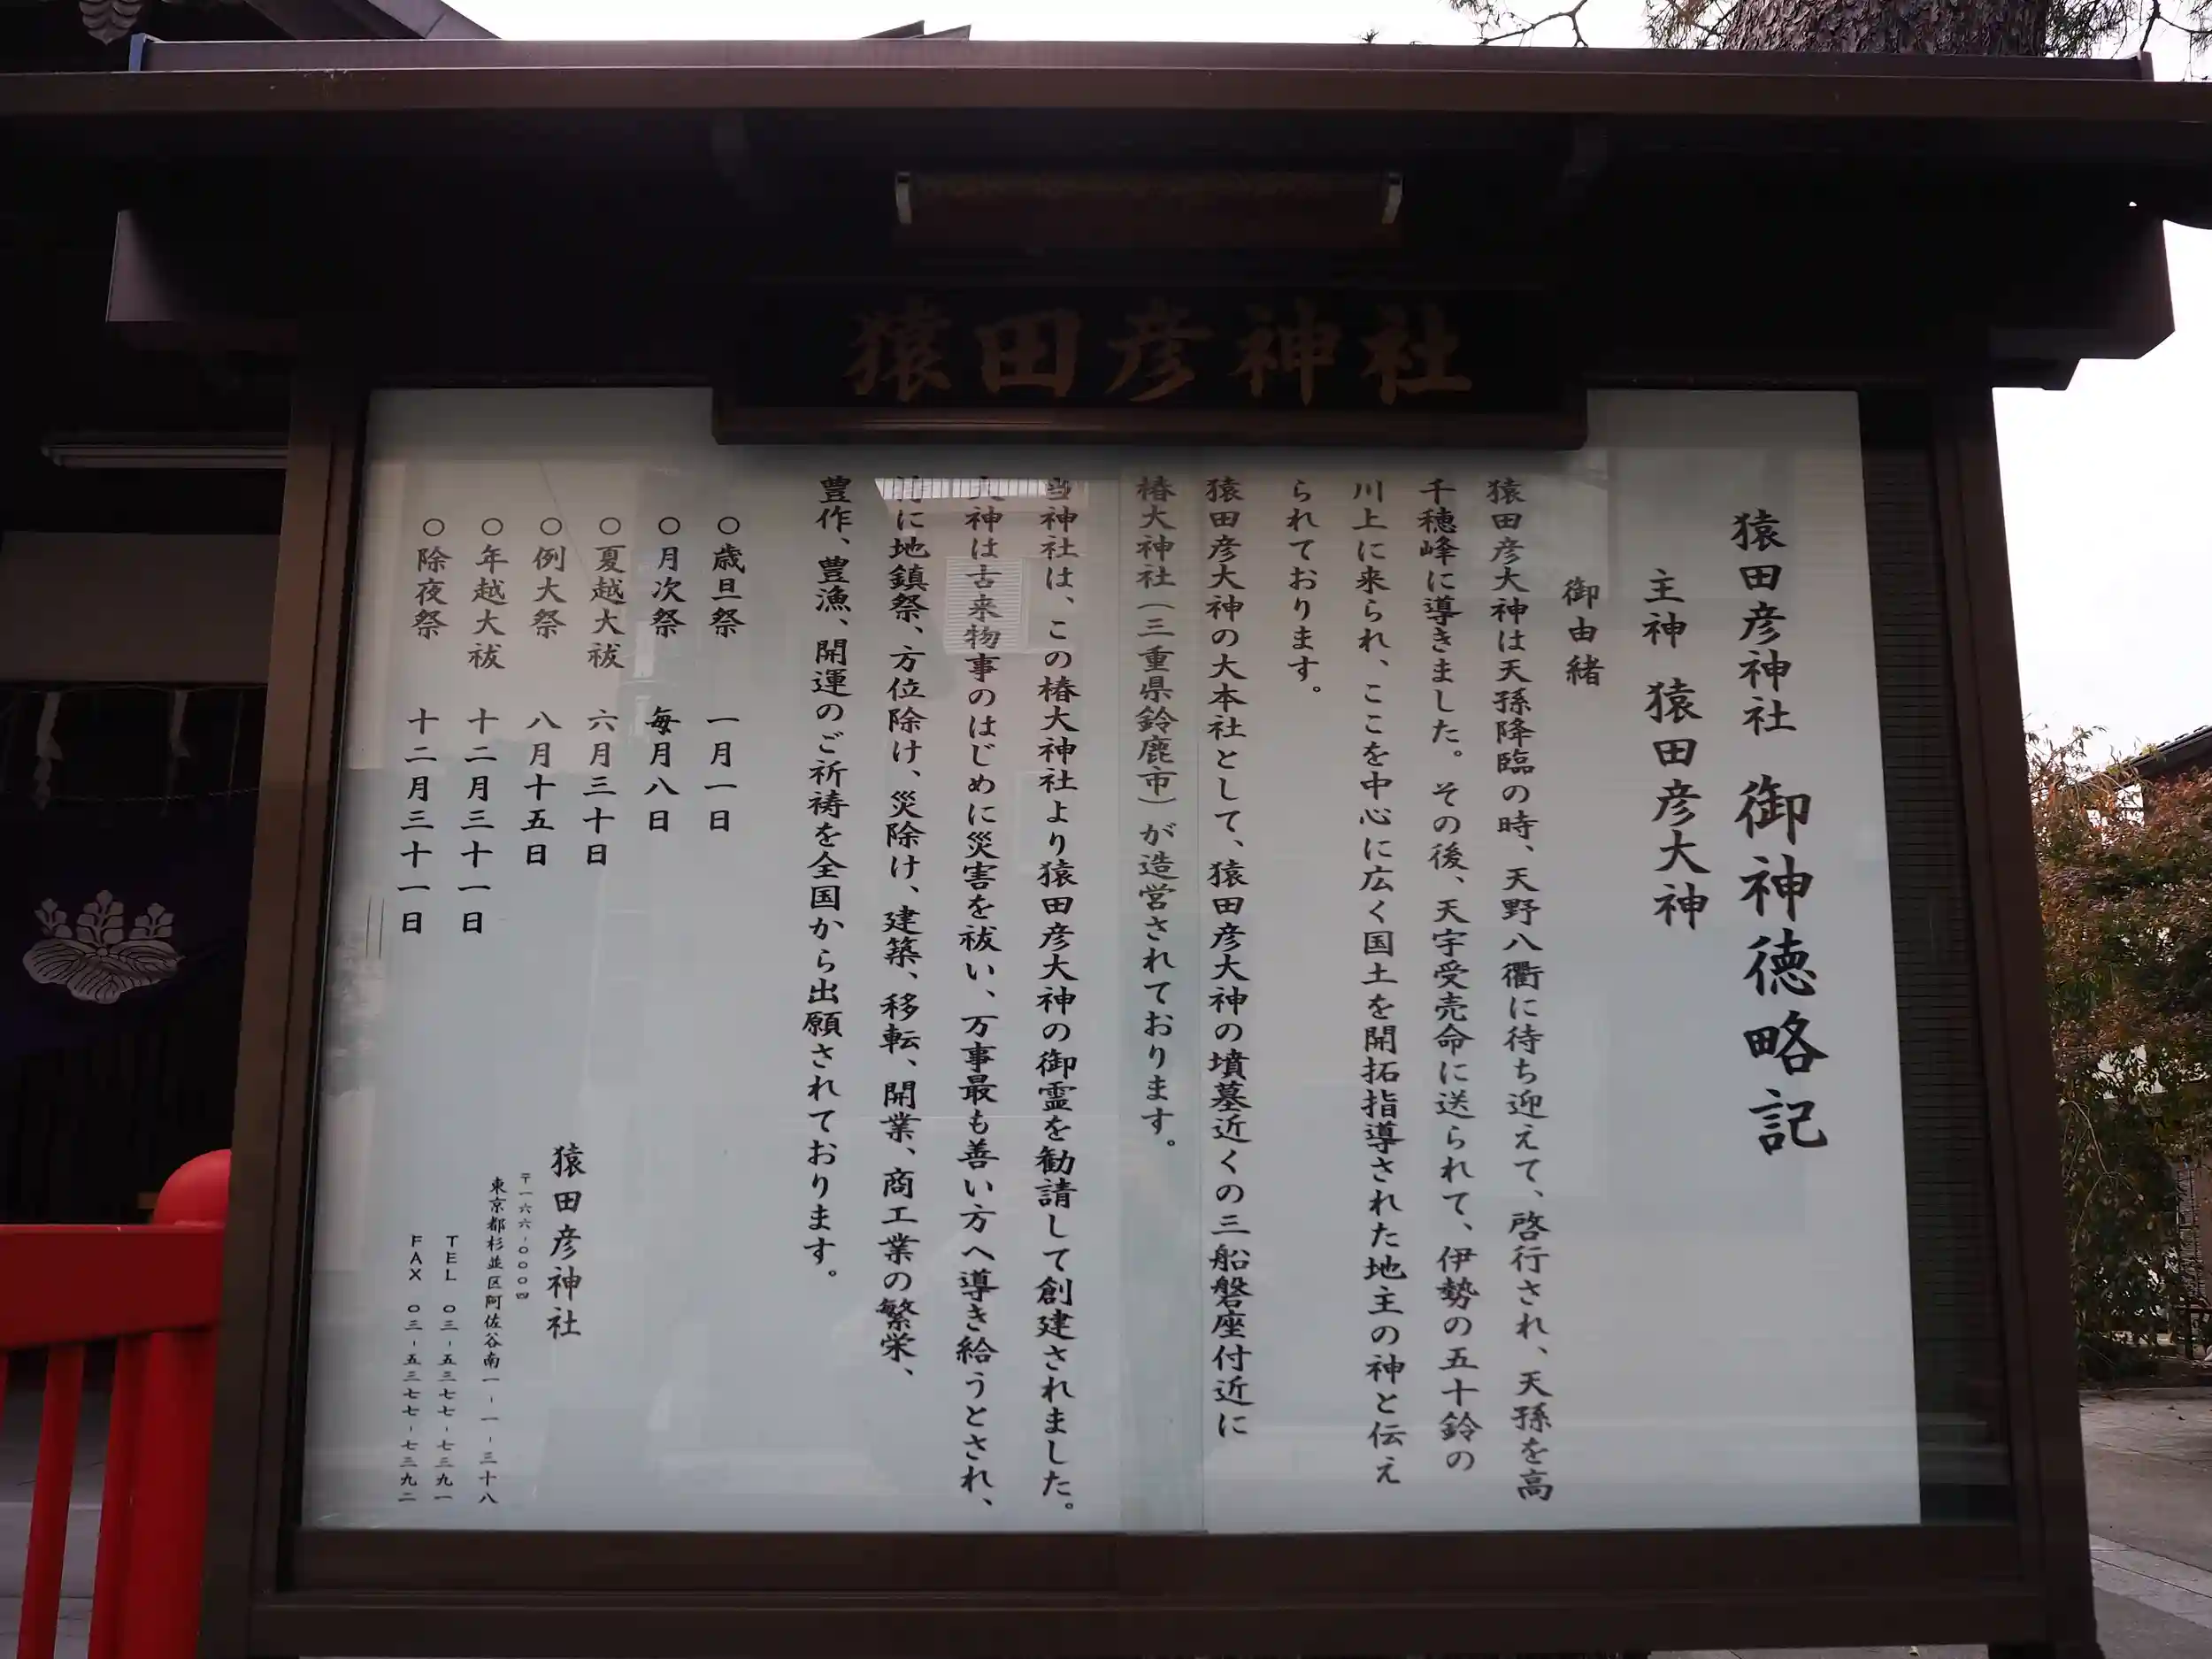 猿田彦神社
猿田彦神社 御神徳略記
主神 猿田彦大神
御由緒
猿田彦大神は天孫降臨の時、天野八衢に待ち迎えて、啓行され、天孫を高
千穂峰に導きました。その後、天宇受売命に送られて、伊勢の五十鈴の
川上に来られ、ここを中心に広く国土を開拓指導された地主の神と伝え
られております。
猿田彦大神の大本社として、猿田彦大神の墳墓近くの三船磐座付近に
椿大神社（三重県鈴鹿市）が造営されております。
当神社は、この椿大神社より猿田彦大神の御霊を勧請して創建されました。
大神は古来物事のはじめに災害を祓い、万事最も善い方へ導き給うとされ、
に地鎮祭、方位除け、災除け、建築、移転、開業、商工業の繁栄、
豊作、豊漁、開運のご祈祷を全国から出願されております。
○歳旦祭 一月一日
○月次祭 毎月八日
○夏越大祓 六月三十日
○例大祭 八月十五日
○年越大祓 十二月三十一日
○除夜祭 十二月三十一日
猿田彦神社
〒一六六-〇〇〇四
東京都杉並区阿佐谷南一-一-三十八
TEL 〇三-五三七七-七三九一
FAX 〇三-五三七七-七三九二